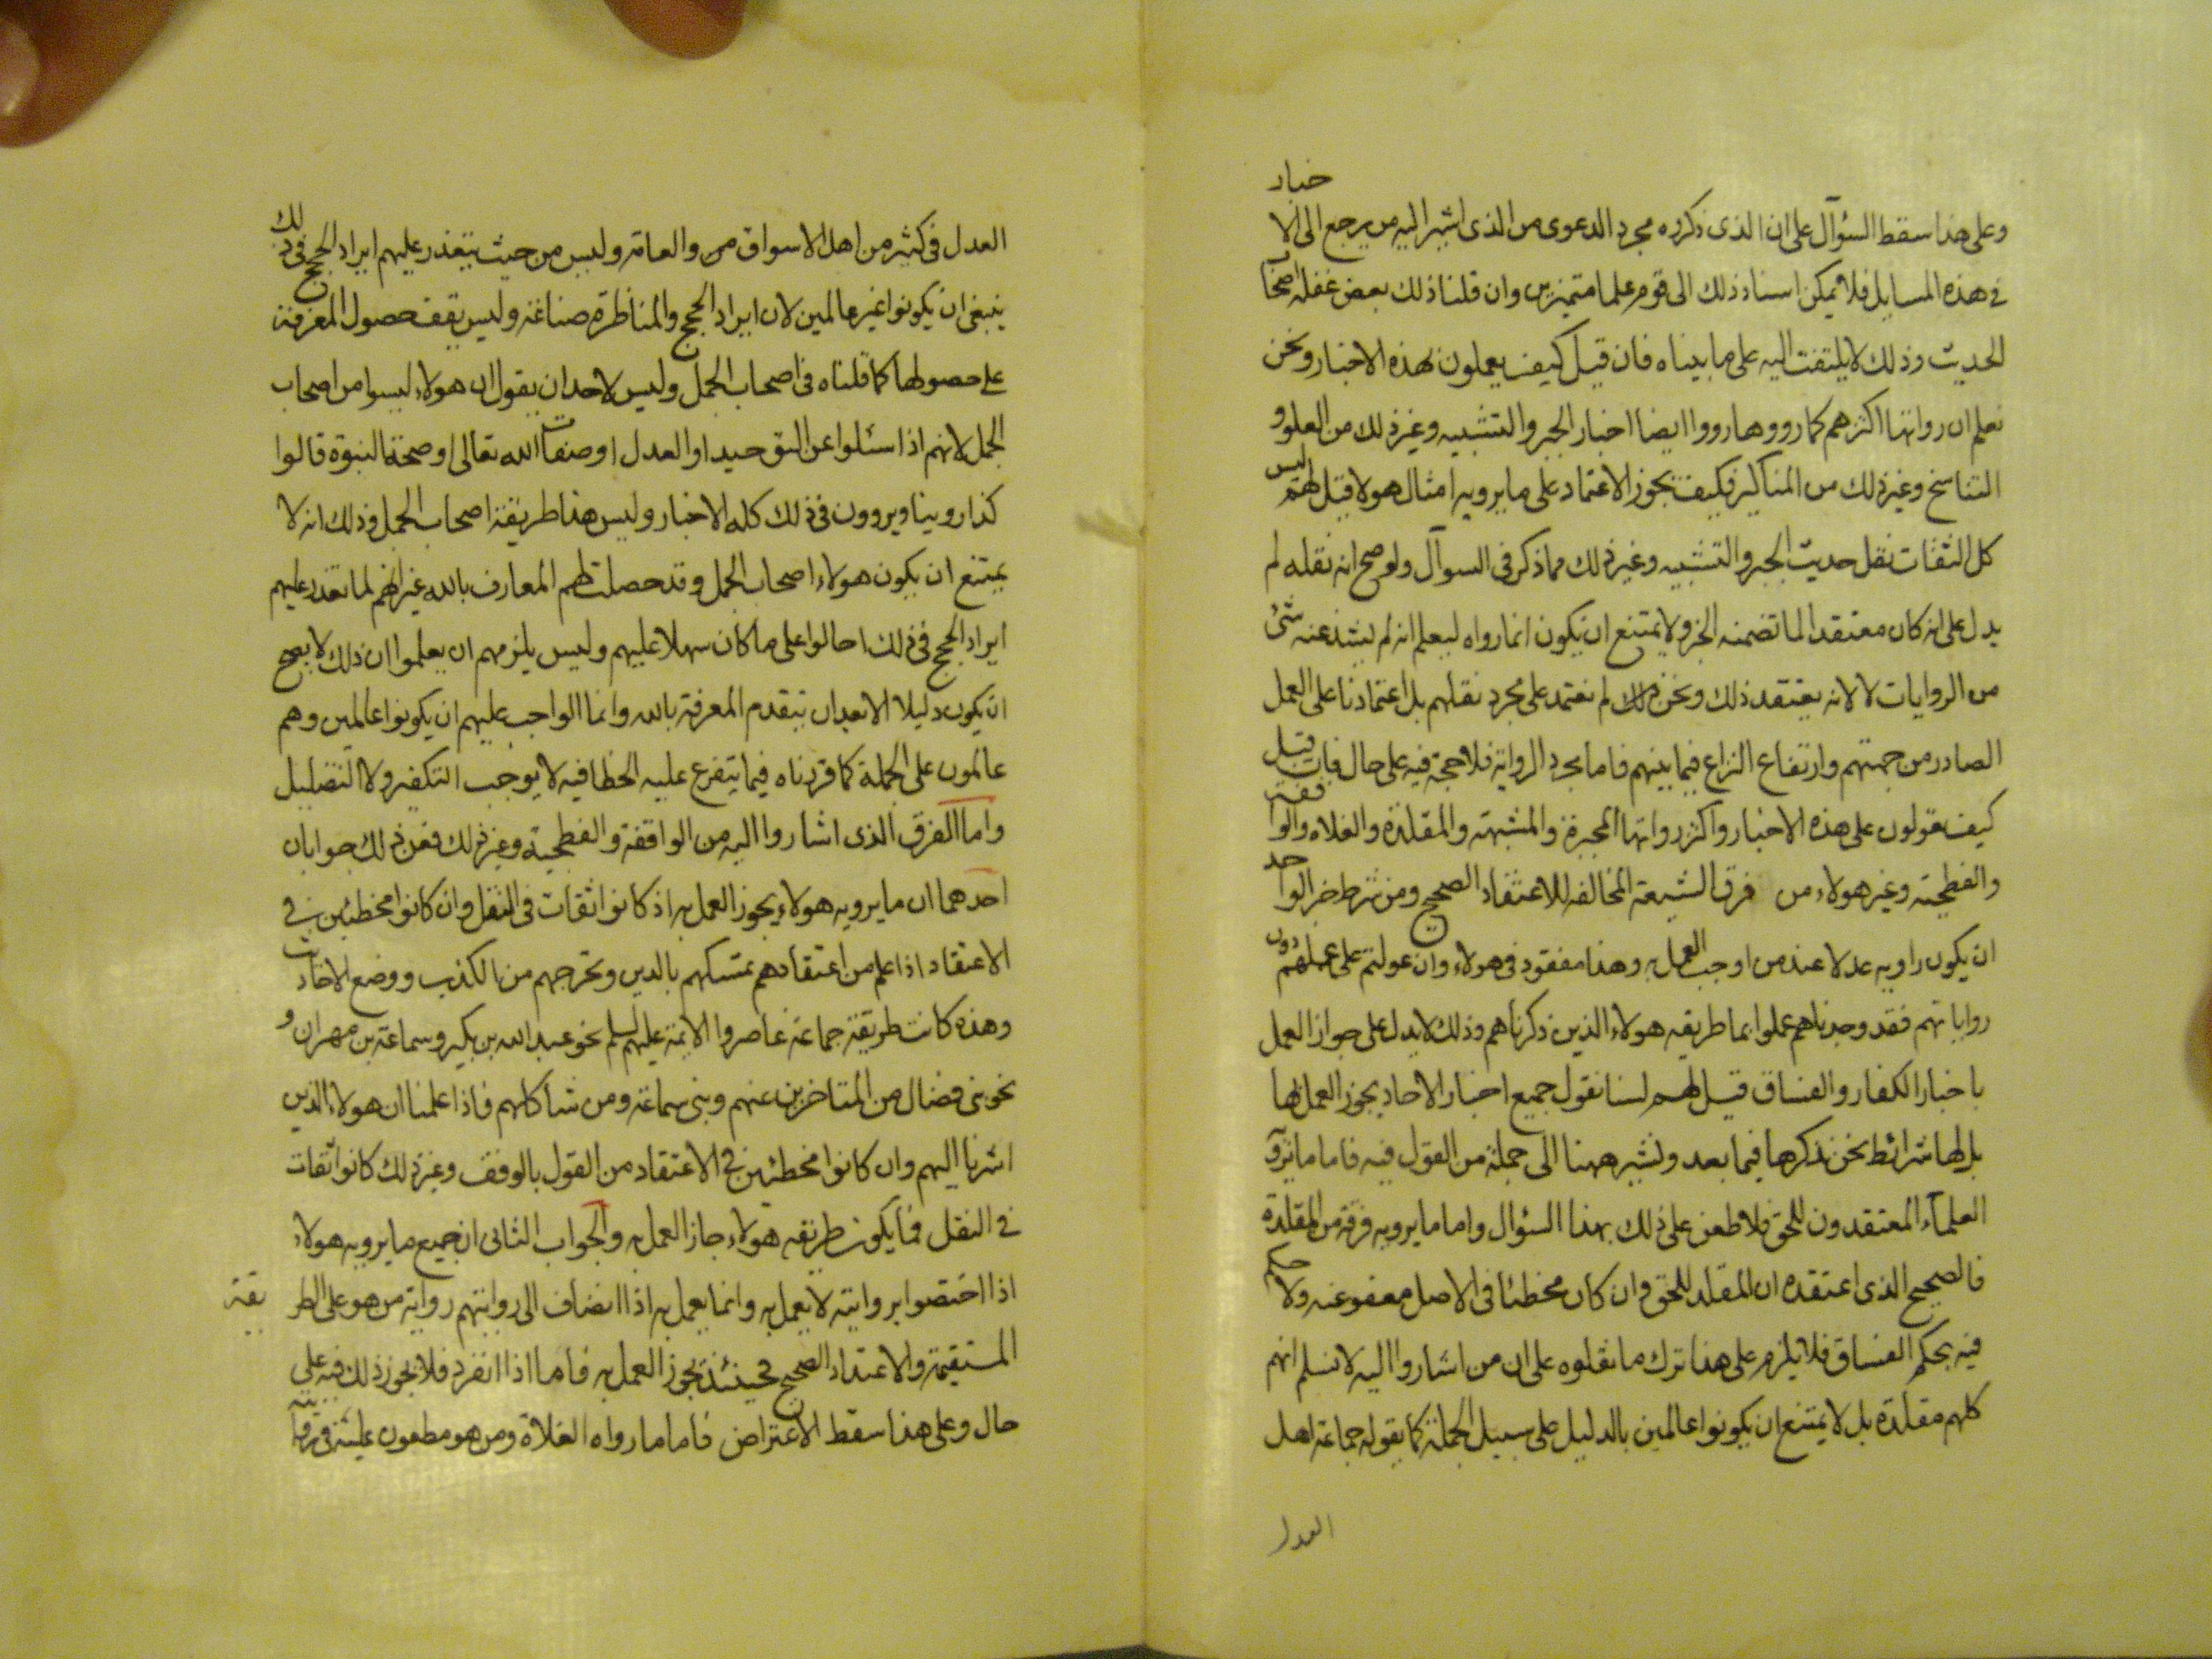 وعلى هذا سقط السؤال على ان الذى ذكروه مجرد الدعوى من الذى اشير اليه من يرجع الى الاخبار
فى هذه المسايل فلا يمكن اسناد ذلك الى قوم علما متميزين وان قلنا ذلك بعض غفله اصحاب
الحديث وذلك لا يلتفت اليه على ما بيناه فان قيل كيف يعملون بهذه الاخبار ونحن
نعلم ان رواتها اكثرهم كما رووها رووا ايضا اخبار الجبر والتشبيه وغير ذلك من الغلو و
التناسخ وغير ذلك من المناكير فكيف يجوز الاعتماد على ما يرويه امثال هولا قيل لهم ليس
كل الثقات نقل حديث الجبر والتشبيه وغير ذلك مما ذكر فى السوال ولو صح انه نقله لم
يدل على انه كان معتقدا لما تضمنه الخبر ولا يمتنع ان يكون انما رواه ليعلم انه لم يشذ عنه شئ
من الروايات لا لانه يعتقد ذلك ونحن لم نعتمد على مجرد نقلهم بل اعتمادنا على العمل
الصادر من جهتهم وارتفاع النزاع فيما بينهم فاما مجرد الرواية فلا حجة فيه على حال فان قيل
كيف تعولون على هذه الاخبار واكثر رواتها المجبرة والمشبهة والمقلدة والغلاه والواقفة
والفطحية وغير هولاء من فرق الشيعة المخالفه للاعتقاد الصحيح ومن شرط خبر الواحد
ان يكون راويه عدلا عند من اوجب العمل به وهذا مفقود فى هولاء وان عولتم على عملهم دون
رواياتهم فقد وجدناهم عملوا بما طريقه هولاء الذين ذكرناهم وذلك لا يدل على جواز العمل
باخبار الكفار والفساق قيل لهم لسنا نقول جميع اخبار الاحاد يجوز العمل بها
بل لها شرائط نحن نذكرها فيما بعد ونشير ههنا الى جملة من القول فيه فاما ما يرويه
العلماء المعتقدون للحق فلا طعن على ذلك بهذا السؤال واما ما يرويه فرقة من المقلدة
فالصحيح الذى اعتقده ان المقلد للحق وان كان مخطئا فى الاصل معفو عنه ولا حكم
فيه بحكم الفساق فلا يلزم على هذا ترك ما نقلوه على ان من اشاروا اليه لا نسلم انهم
كلهم مقلدة بل لا يمتنع ان يكونوا عالمين بالدليل على سبيل الجملة كما يقوله جماعة اهل
العدل
العدل فى كثير من اهل الاسواق والعامة وليس من حيث يتعذر عليهم ايراد الحجج فى ذلك
ينبغى ان يكونوا غير عالمين لان ايراد الحجج والمناظرة صناعة وليس يقف حصول المعرفة
على حصولها كما قلناه فى اصحاب الجمل وليس لاحد ان يقول ان هولاء ليسوا من اصحاب
الجمل لانهم اذا سئلوا عن التوحيد او العدل او صفات الله تعالى او صحة النبوة قالوا
كذا روينا ويروون فى ذلك كله الاخبار وليس هذا طريقة اصحاب الجمل وذلك انه لا
يمتنع ان يكون هولاء اصحاب الجمل وقد حصلت لهم المعارف بالله غير انهم لما تعذر عليهم
ايراد الحجج فى ذلك احالوا على ما كان سهلا عليهم وليس يلزمهم ان يعلموا ان ذلك لا يصح
ان يكون دليلا الا بعد ان يتقدم المعرفة بالله وانما الواجب عليهم ان يكونوا عالمين وهم
عالمون على الجملة كما قررناه فيما يتفرع عليه الخطا فيه لا يوجب التكفير ولا التضليل
واما الفرق الذى اشاروا اليه من الواقفة والفطحية وغير ذلك فعن ذلك جوابان
احدهما ان ما يرويه هولاء يجوز العمل به اذ كانوا ثقات فى النقل وان كانوا مخطئين فى
الاعتقاد اذا علم من اعتقادهم تمسكهم بالدين وتحرجهم من الكذب ووضع الاحاديث
وهذه كانت طريقة جماعة عاصروا الايمة عليهم السلم نحو عبد الله بن بكير وسماعة بن مهران و
نحو بنى فضال من المتاخرين عنهم وبنى سماعة ومن شاكلهم فاذا علمنا ان هولاء الذين
اشرنا اليهم وان كانوا مخطئين فى الاعتقاد من القول بالوقف وغير ذلك كانوا ثقات
فى النقل فما يكون طريقه هولاء جاز العمل به والجواب الثانى ان جميع ما يرويه هولاء
اذا اختصوا بروايته لا يعمل به وانما يعمل به اذا انضاف الى روايتهم رواية من هو على الطريقة
المستقيمة والاعتقاد الصحيح فحينئذ يجوز العمل به فاما اذا انفرد فلا يجوز ذلك فيه على
حال وعلى هذا سقط الاعتراض فاما ما رواه الغلاة ومن هو مطعون عليه فى روايته